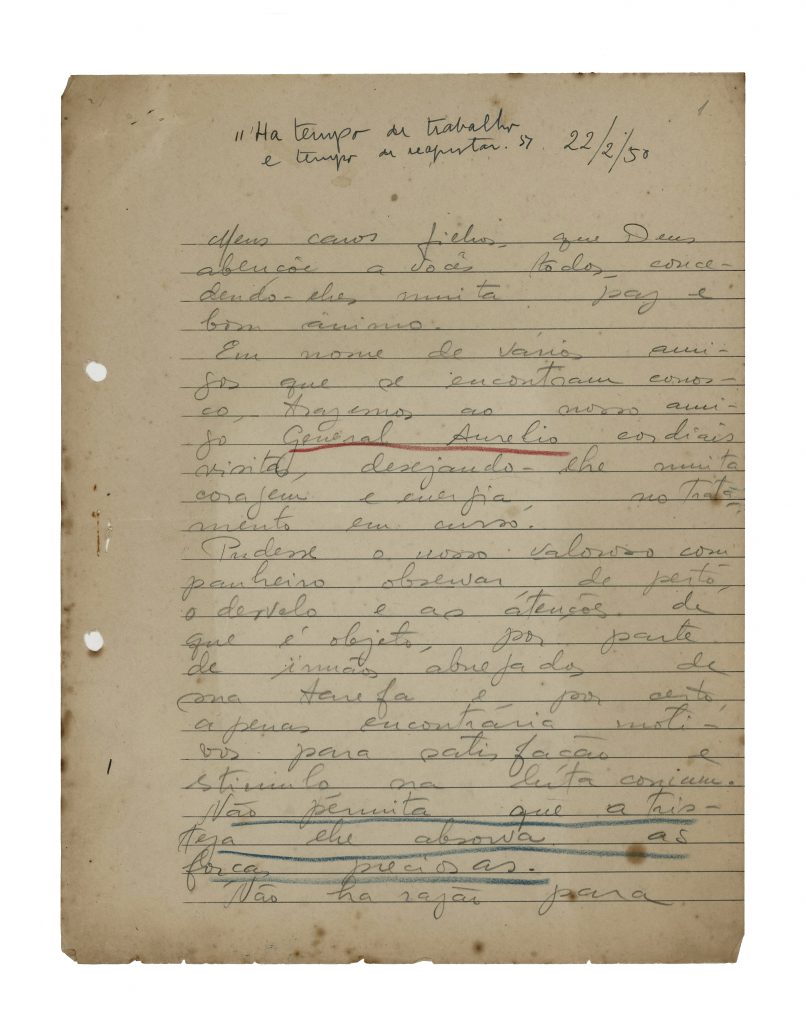 1
"Ha tempo de trabalho
e tempo de reajustar. 22/2/50
Meus caros filhos, que Deus
abençõe a vocês todos, conce-
dendo-lhes muita paz e
bom ânimo.
Em nome de vários ami-
gos que se encontram conos-
co, trazemos ao nosso ami-
go General Aurelio cordiais
visitas, desejando-lhe muita
coragem e energia no trata-
mento em curso.
Pudesse o nosso valoroso com
panheiro observar de perto,
o desvelo e as atenções de
que é objeto, por parte
de irmãos abnegados de
sua tarefa e, por certo,
apenas encontraria moti-
vos para satisfação e
estimulo na luta comum.
Não permita que a tris-
teza lhe absorva as
forças preciosas.
Não ha razão para